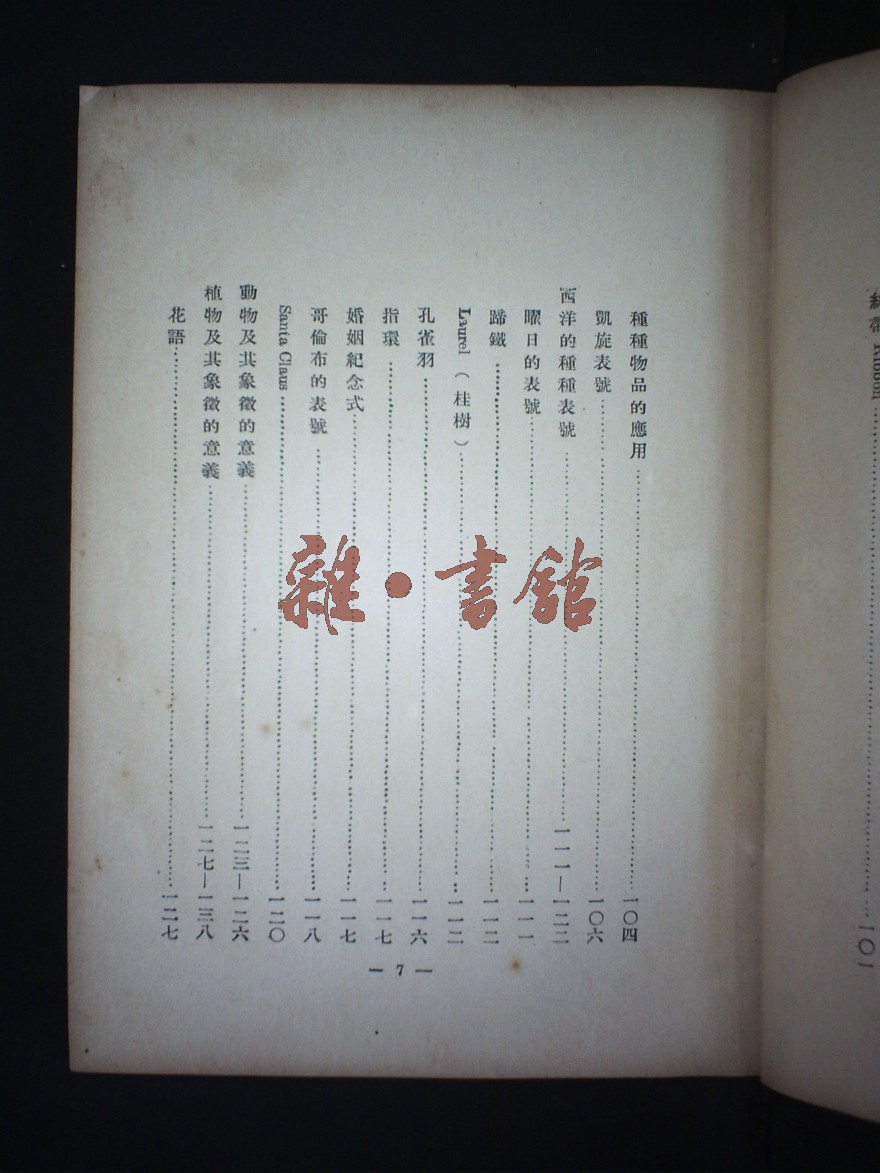 Ribbon……101
種種物品的應用……一〇四
凱旋表號……一〇六
西洋的種種表號……一一一—一二二
曜日的表號……一一一
蹄鐵……一一二
Laurel（桂樹）……一一二
孔雀羽……一一六
指環……一一七
婚姻紀念式……一一七
哥倫布的表號……一一八
Santa Claus……一二〇
動物及其象徵的意義……一二三—一二六
植物及其象徵的意義……一二七—一三八
花語……一二七
— 7 —
雜·書館